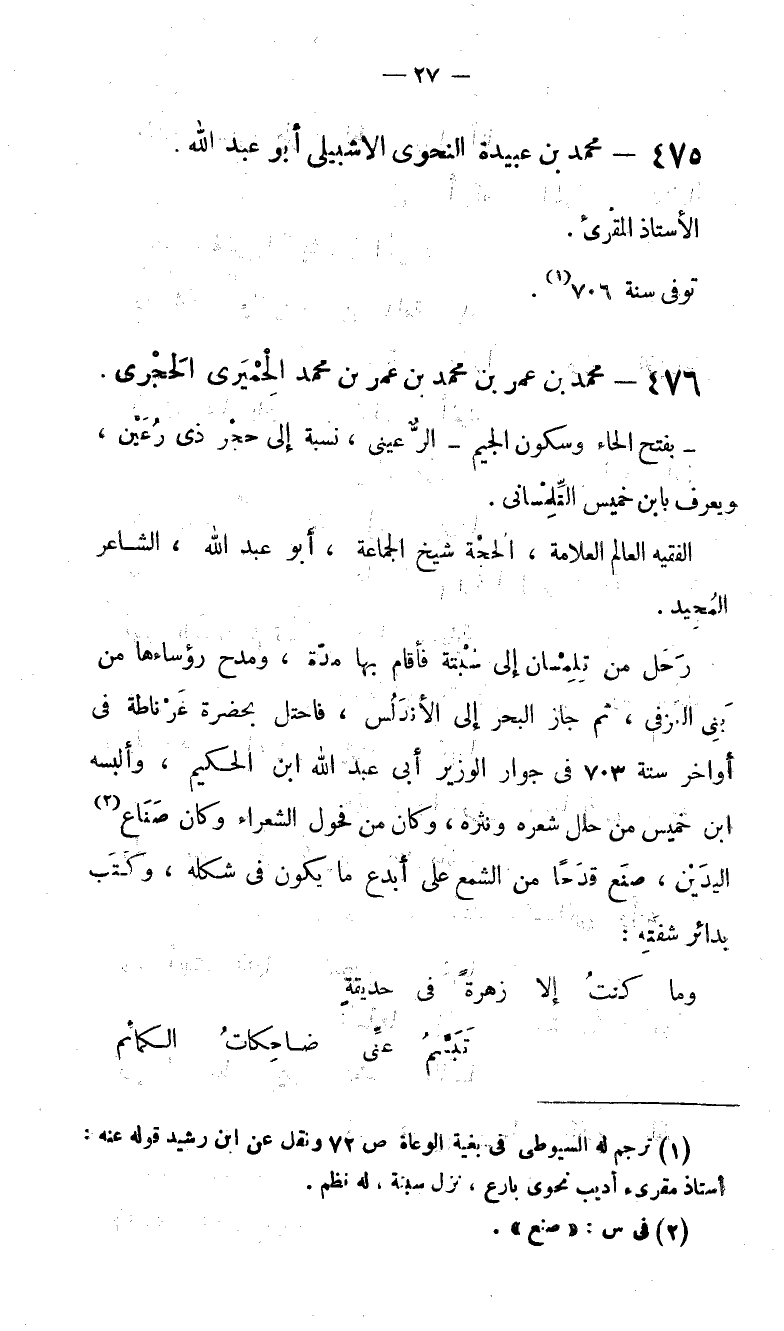 — ٢٧ —
٤٧٥ — محمد بن عبيدة النحوى الاشبيلى أبو عبد الله .
الأستاذ المقرئ .
توفى سنة ٧٠٦(١) .
٤٧٦ — محمد بن عمر بن محمد بن عمر بن محمد الِحْمْيَرى الَحجْرى .
ـ بفتح الحاء وسكون الجيم ـ الرُّعينى ، نسبة إلى حجْر ذى رُعَيْن ،
ويعرف بابن خميس التِّلِمْسانى .
الفقيه العالم العلامة ، الحجّة شيخ الجماعة ، أبو عبد الله ، الشـاعر
المُجِيد .
رَحَل من تِلِمْسان إلى سَبْتة فأقام بها مدّة ، ومدح رؤساءها من
بَنِى العزفى ، ثم جاز البحر إلى الأندَلُس ، فاحتل بحضرة غَرْناطة فى
أواخر سنة ٧٠٣ فى جوار الوزير أبى عبد الله ابن الحـكيم ، وألبسه
ابن خميس من حلل شعره ونثره ، وكان من فحول الشعراء وكان صَفَاع(٢)
اليدَيْن ، صنَع قدَحًا من الشمع على أبدع ما يكون فى شكله ، وكَـتَب
بدائر شفَتِه :
وما كنتُ إلا زهرةً فى حديقةٍ
تَبَسَّمُ عنِّى ضـاحِكاتُ الـكمائم
(١) ترجم له السيوطى فى بغية الوعاة ص ٧٢ ونقل عن ابن رشيد قوله عنه :
أستاذ مقرىء أديب نحوى بارع ، نزل سبتة ، له نظم .
(٢) فى س : « صنع » .